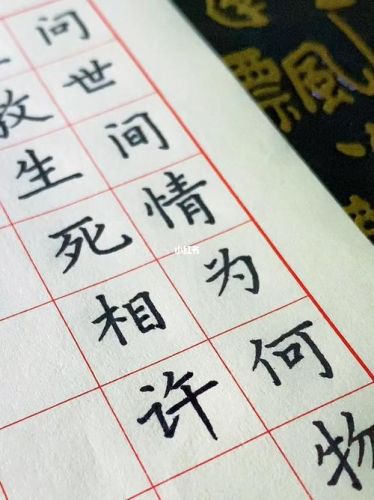 问世间情为何物
教生死相许
小红书
風